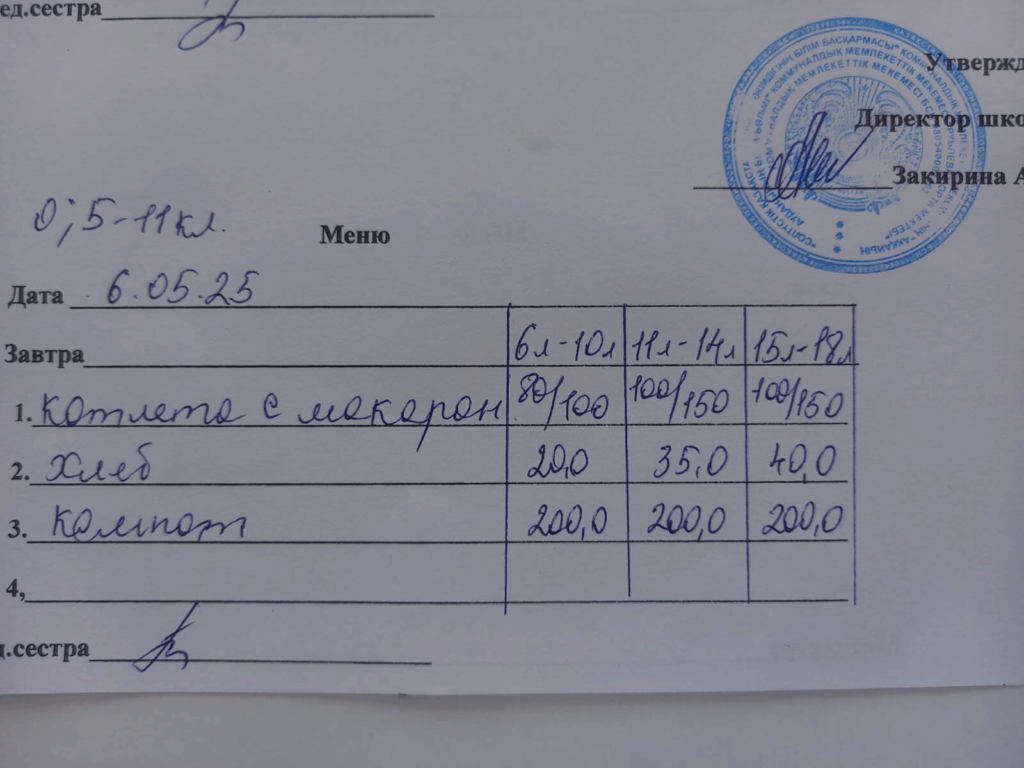 ед.сестра
Утвержд
Директор шко
Закирина А
0; 5-11 кл.
Меню
Дата 6.05.25
Завтра 6л-10л 11л-14л 15л-18л
1. котлета с макарон 80/100 100/150 100/150
2. хлеб 20,0 35,0 40,0
3. компот 200,0 200,0 200,0
4,
д.сестра